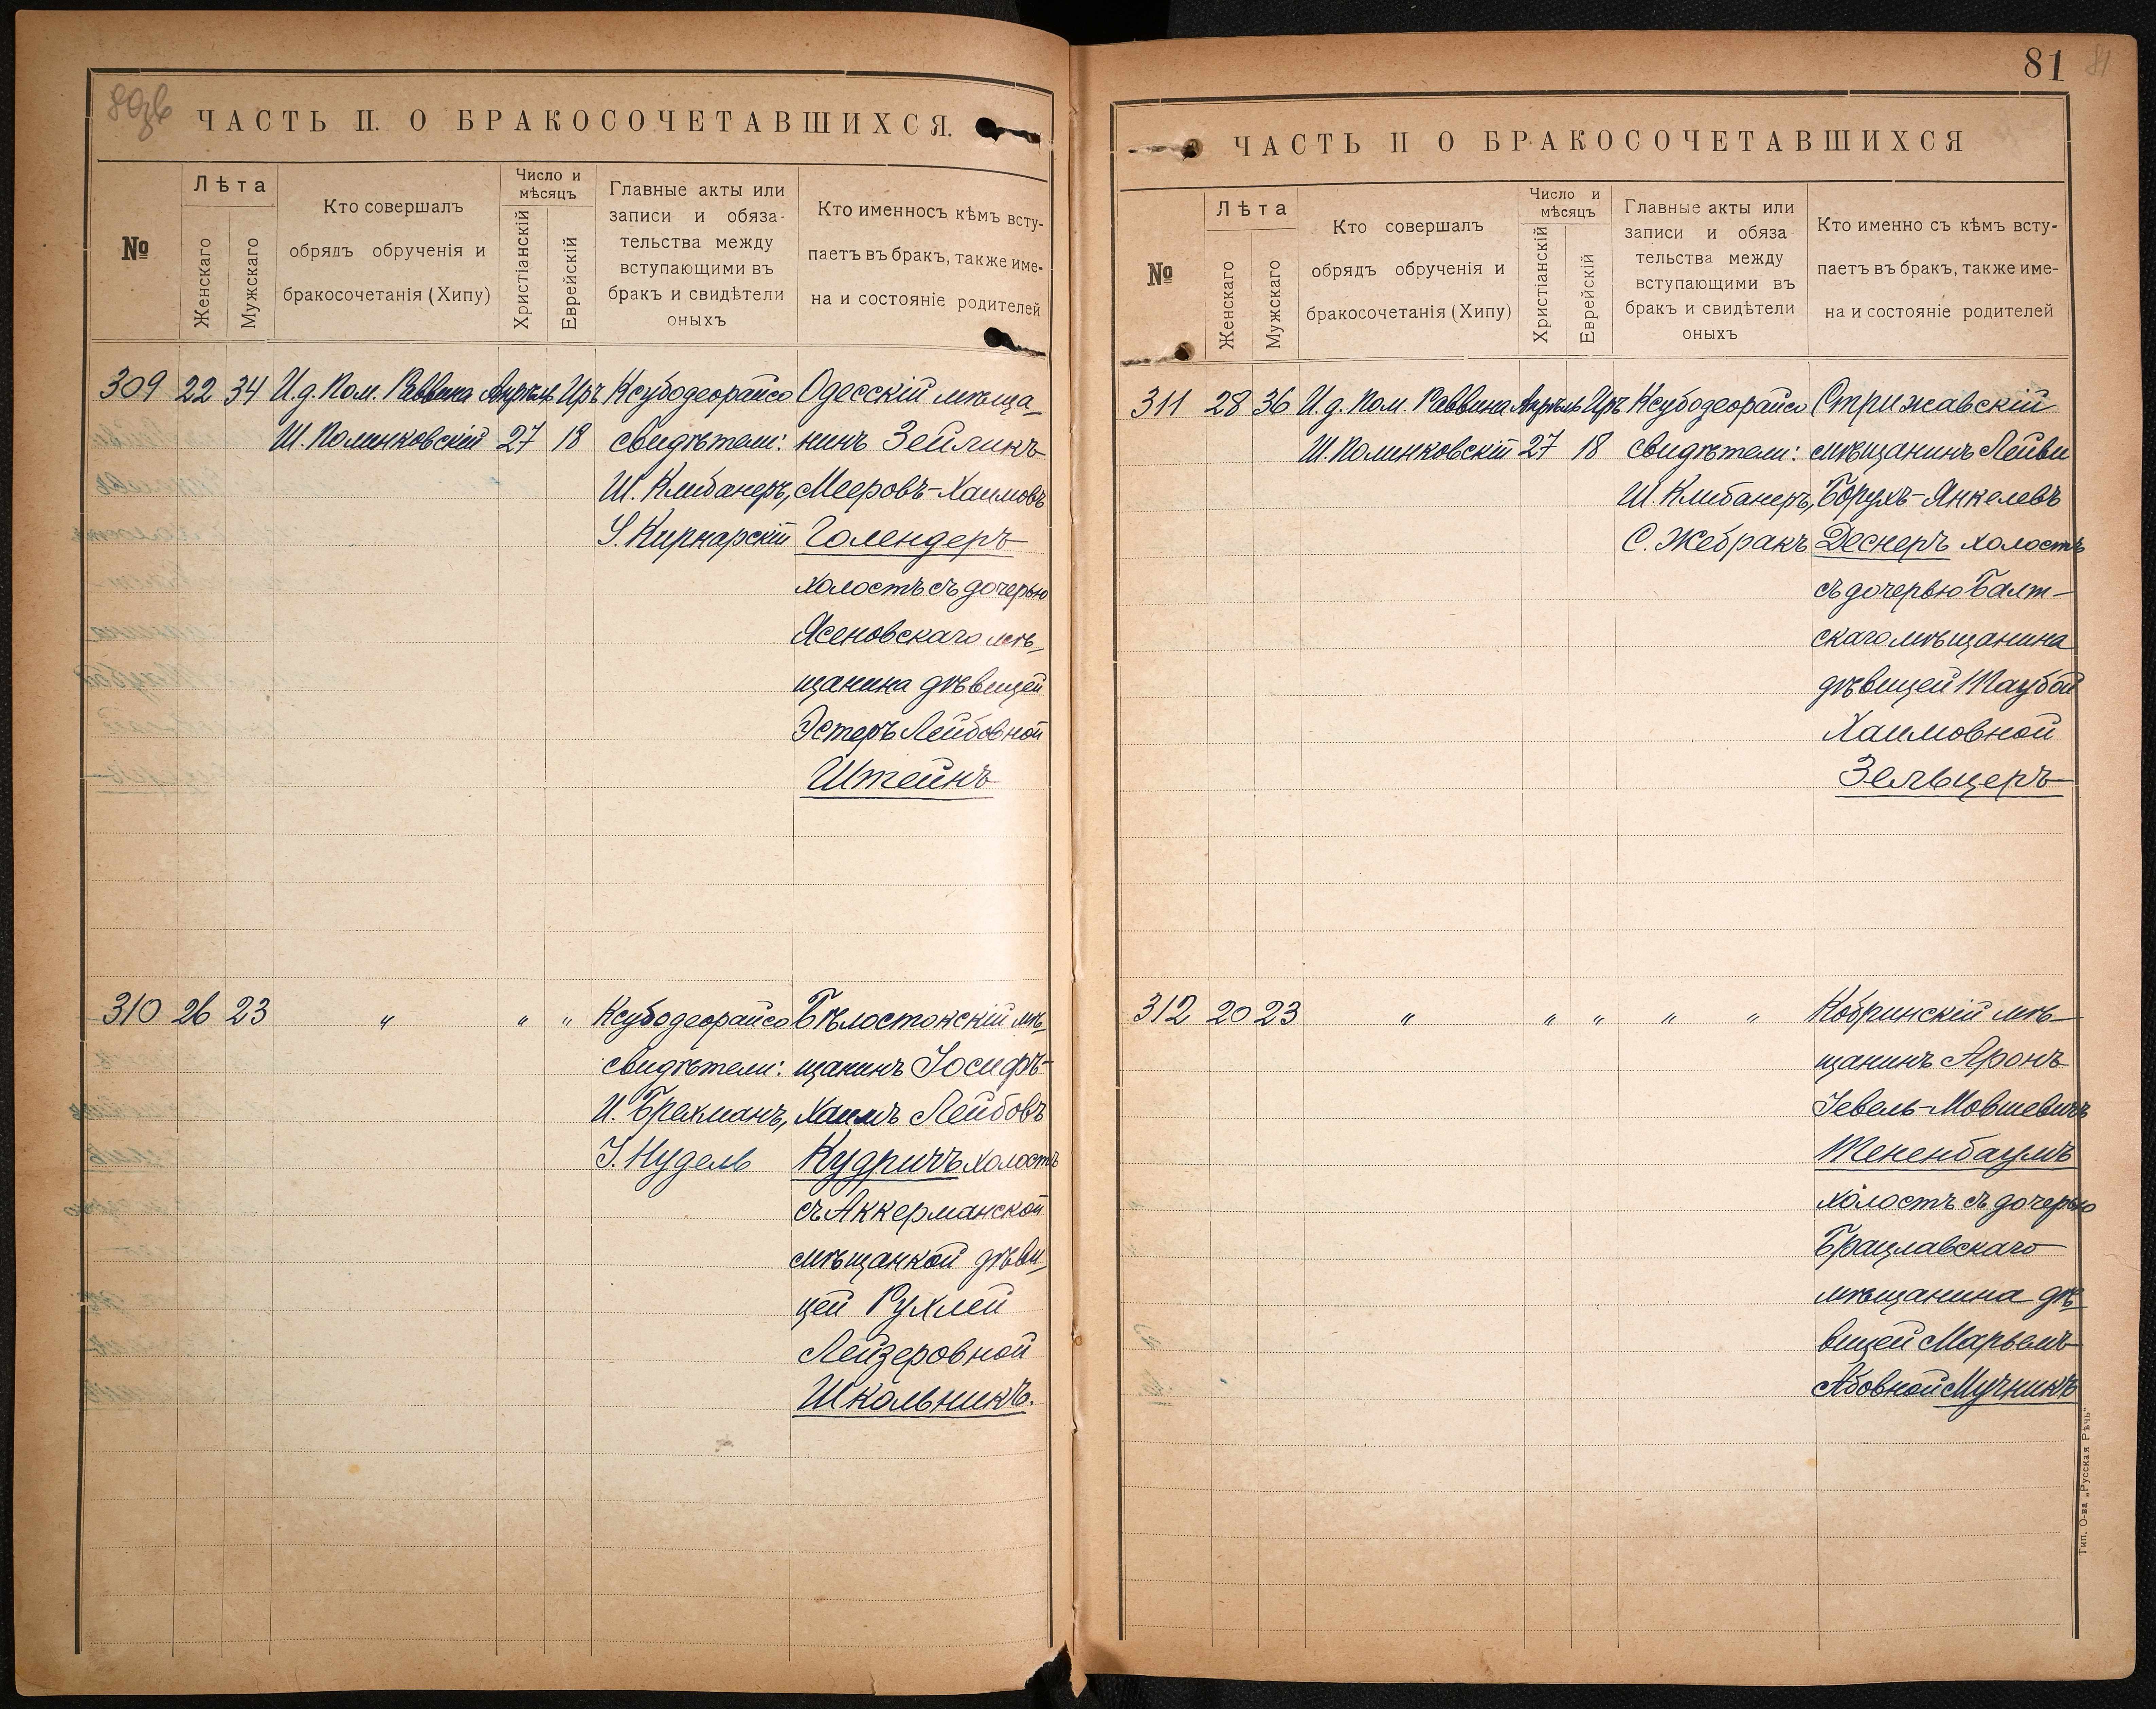 ЧАСТЬ II. О БРАКОСОЧЕТАВШИХСЯ.
№
Лѣта
Женскаго
Мужскаго
Кто совершалъ
обрядъ обрученія и
бракосочетанія (Хипу)
Число и
мѣсяцъ
Христіанскій
Еврейскій
Главные акты или
записи и обяза-
тельства между
вступающими въ
бракъ и свидѣтели
оныхъ
Кто именносъ кѣмъ всту-
паетъ въ бракъ, также име-
на и состояніе родителей
309 22 34 И.д. Пом. Раввина Апрѣль Иръ Ксубодеорайсо Одесскій мѣща-
Ш. Полинковскій 27 18 свидѣтели: нинъ Зейликъ
Ш. Клибанеръ, Мееровъ-Хаимовъ
І. Кирнарскій Голендеръ
холостъ съ дочерью
Ясеновскаго мѣ-
щанина дѣвицей
Эстеръ Лейбовной
Штейнъ
310 26 23 " " " Ксубодеорайсо Бѣлостокскій мѣ-
свидѣтели: щанинъ Іосифъ-
И. Бракманъ, Хаимъ Лейбовъ
І. Нудель Кудричъ холостъ
съ Аккерманской
мѣщанкой дѣви-
цей Рухлей
Лейзеровной
Школьникъ.
81
ЧАСТЬ II О БРАКОСОЧЕТАВШИХСЯ
№
Лѣта
Женскаго
Мужскаго
Кто совершалъ
обрядъ обрученія и
бракосочетанія (Хипу)
Число и
мѣсяцъ
Христіанскій
Еврейскій
Главные акты или
записи и обяза-
тельства между
вступающими въ
бракъ и свидѣтели
оныхъ
Кто именно съ кѣмъ всту-
паетъ въ бракъ, также име-
на и состояніе родителей
311 28 36 И.д. Пом. Раввина Апрѣль Иръ Ксубодеорайсо Стрижавскій
Ш. Полинковскій 27 18 свидѣтели: мѣщанинъ Лейви
Ш. Клибанеръ, Борухъ-Янкелевъ
С. Жебракъ Деснеръ холостъ
съ дочерью Балт-
скаго мѣщанина
дѣвицей Таубой
Хаимовной
Зельцеръ
312 20 23 " " " " " Кобринскій мѣ-
щанинъ Аронъ
Іевель-Мовшевичъ
Тененбаумъ
холостъ съ дочерью
Брацлавскаго
мѣщанина дѣ-
вицей Марьемъ
Абовной Мучникъ
Тип. О-ва „Русская Рѣчь"